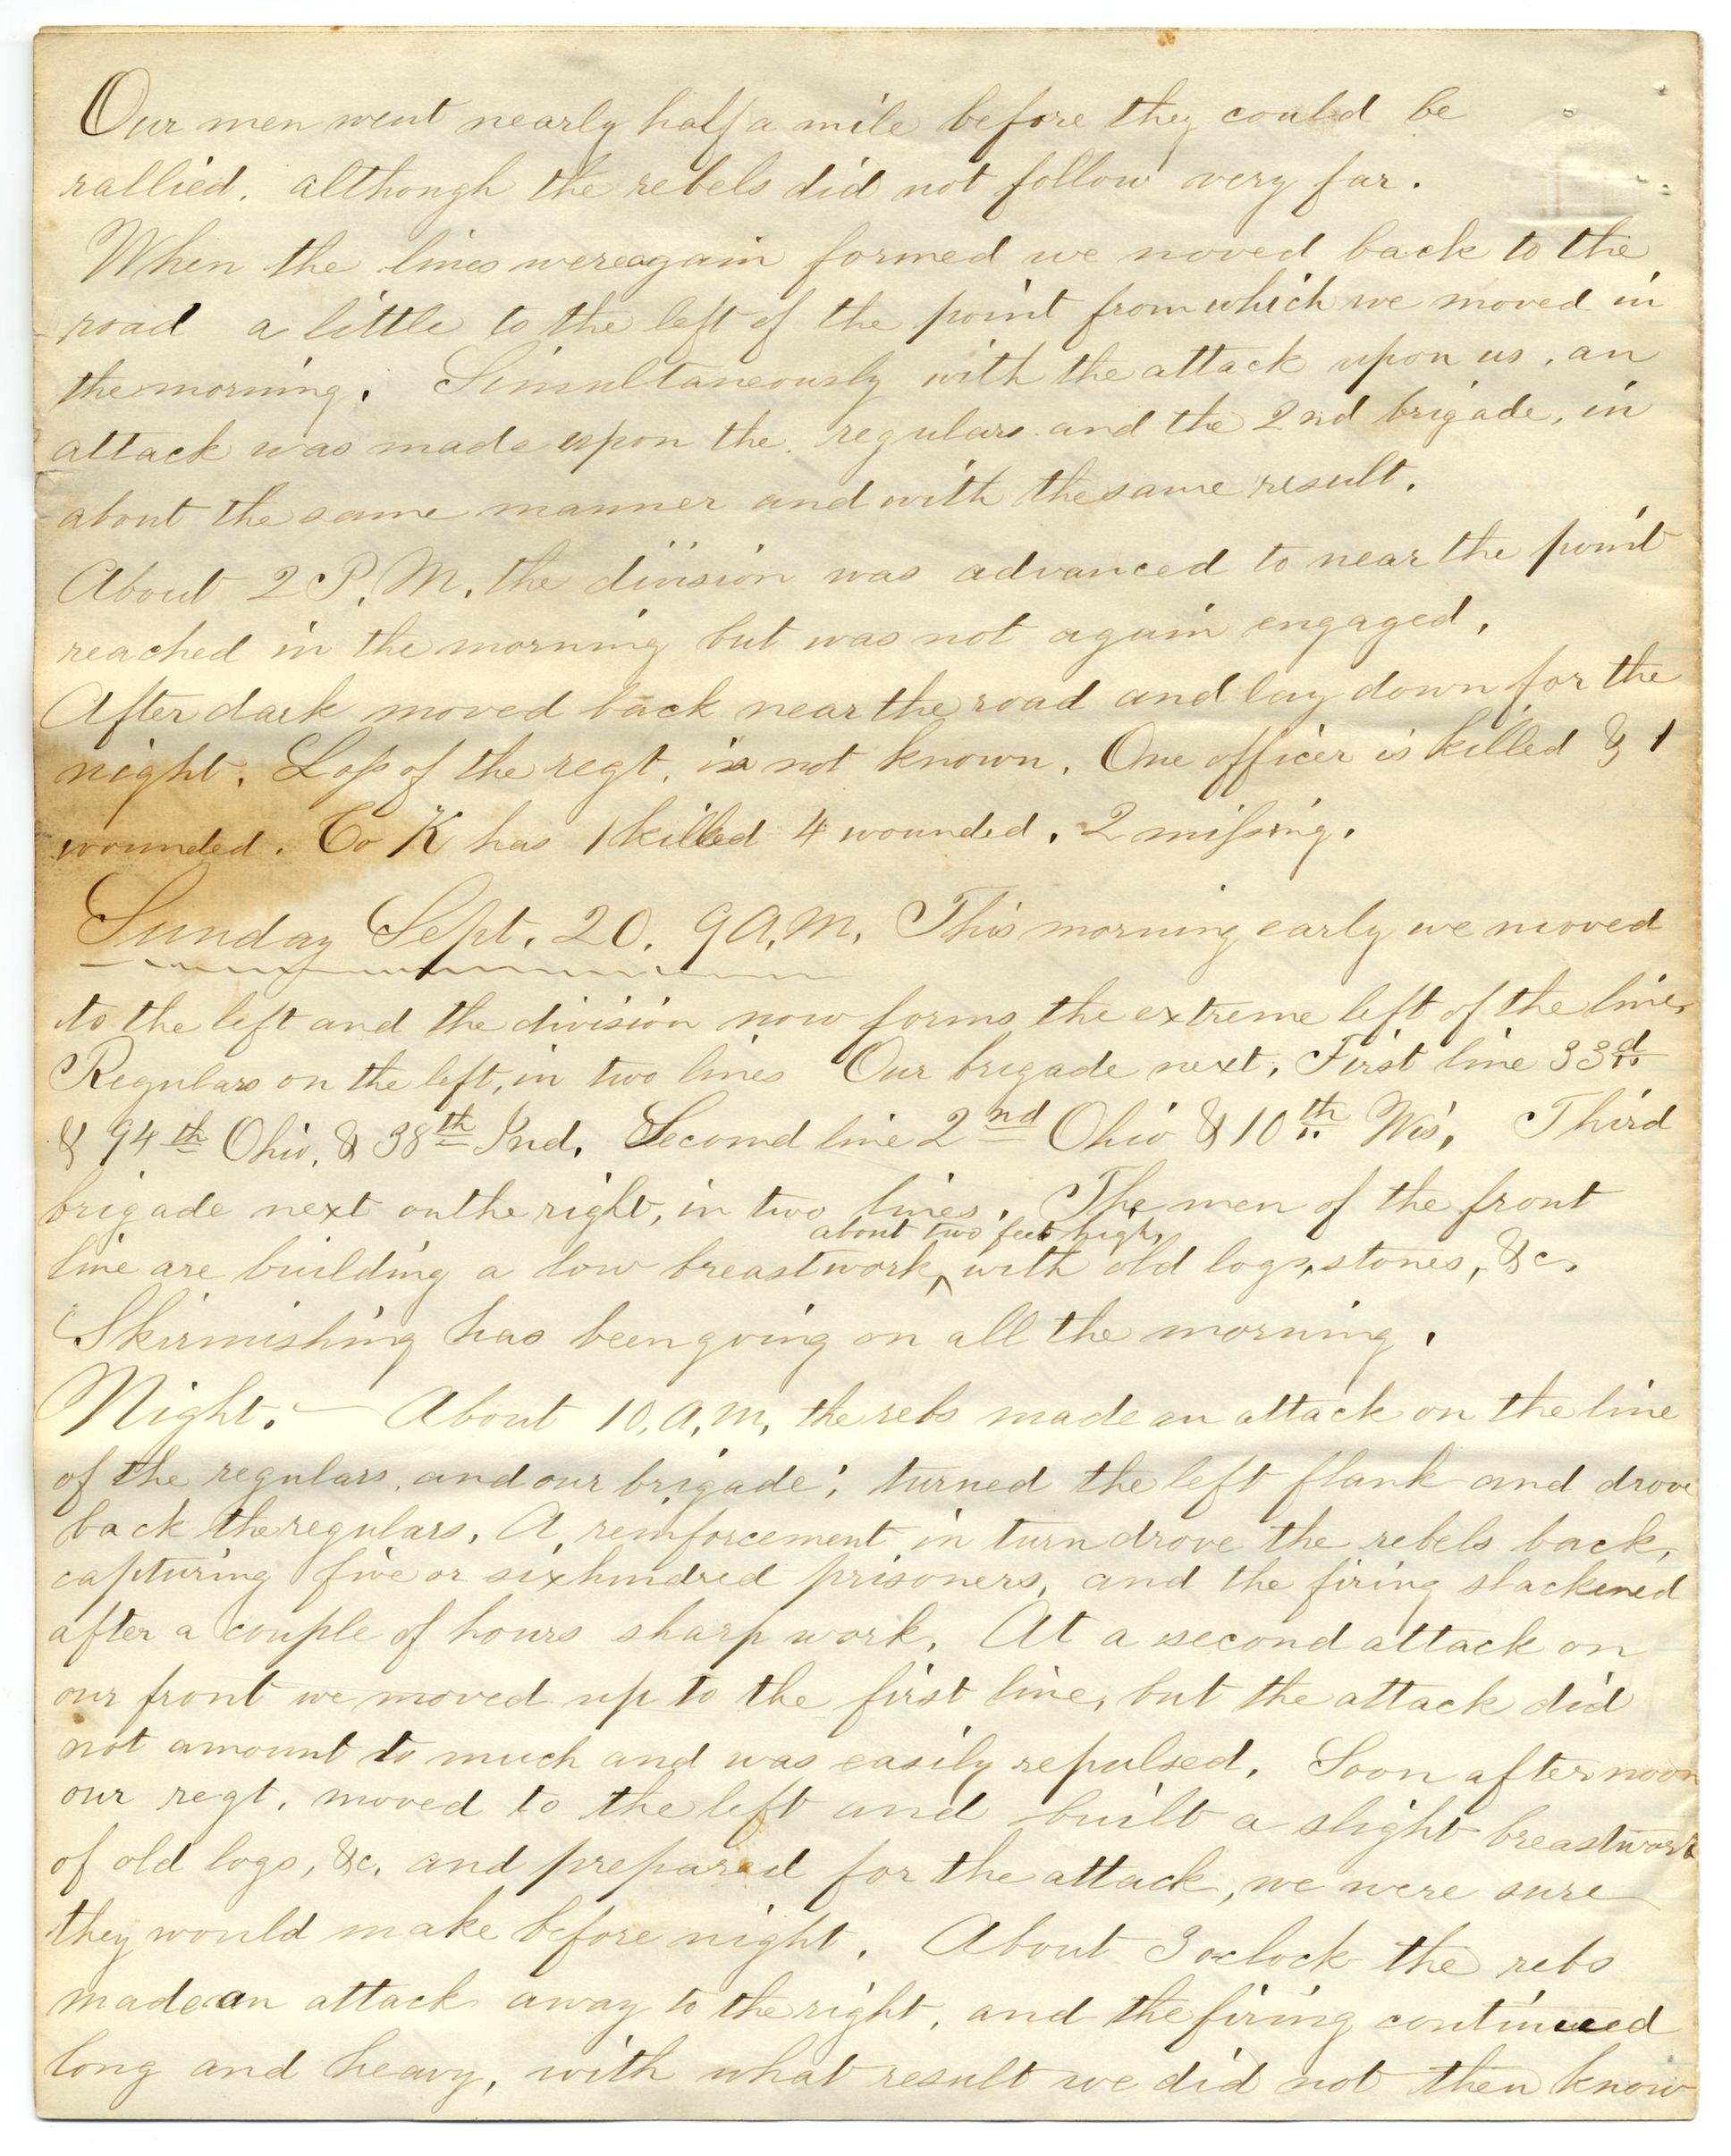 Our men went nearly half a mile before they could be
rallied. although the rebels did not follow very far.
When the lines were again formed we moved back to the
road a little to the left of the point from which we moved in
the morning. Simultaneously with the attack upon us, an
attack was made upon the regulars and the 2nd brigade, in
about the same manner and with the same result.
About 2 P.M. the division was advanced to near the point
reached in the morning but was not again engaged.
After dark moved back near the road and lay down for the
night. Loss of the regt. is not known. One officer is killed & 1
wounded. Co K has 1 killed 4 wounded. 2 missing.
Sunday Sept. 20. 9 A.M. This morning early we moved
to the left and the division now forms the extreme left of the line,
Regulars on the left, in two lines Our brigade next, First line 33d
& 94th Ohio, & 38th Ind. Second line 2nd Ohio & 10th Wis, Third
brigade next on the right, in two lines. The men of the front
about two feet high,
line are building a low breastwork, ^ with old logs, stones, &c.
Skirmishing has been going on all the morning.
Night. — About 10, A,M, the rebs made an attack on the line
of the regulars, and our brigade; turned the left flank and drove
back the regulars. A reinforcement in turn drove the rebels back,
capturing five or six hundred prisoners, and the firing slackened
after a couple of hours sharp work. At a second attack on
our front we moved up to the first line, but the attack did
not amount to much and was easily repulsed. Soon after noon
our regt. moved to the left and built a slight breastwork
of old logs, &c. and prepared for the attack, we were sure
they would make before night. About 3 oclock the rebs
made an attack away to the right, and the firing continued
long and heavy, with what result we did not then know